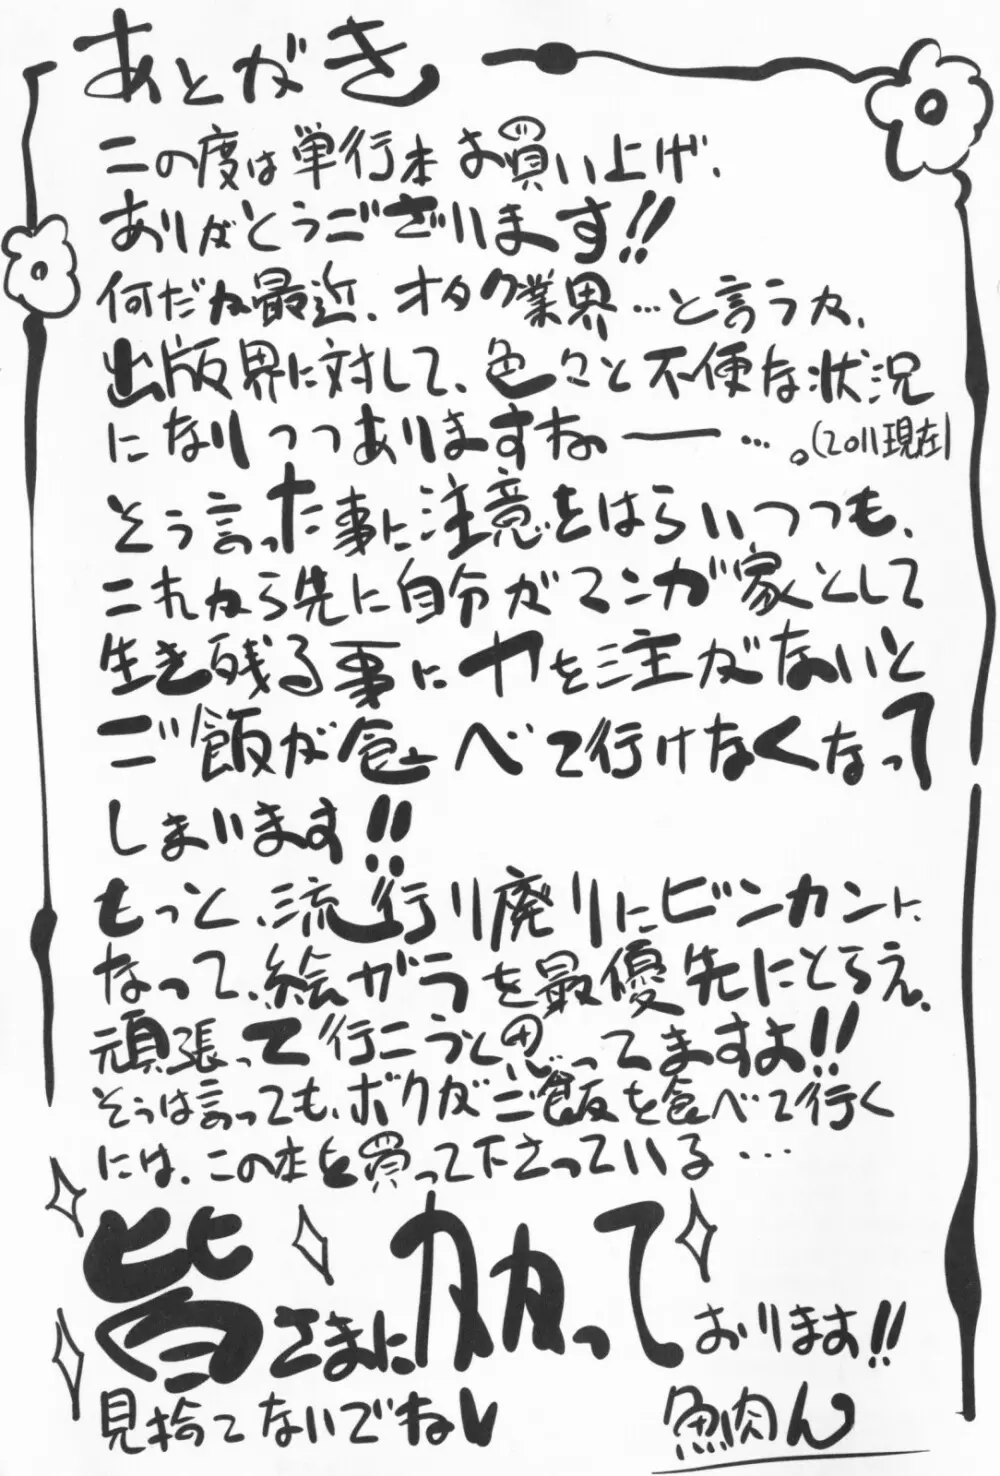 あとがき
この度は単行本お買い上げ、
ありがとうございます!!
何だか最近、オタク業界…と言うか、
出版界に対して、色々と不便な状況
になりつつありますねー…。(2011現在)
そう言った事に注意をはらいつつも、
これから先に自分がマンガ家として
生き残る事に力を注がないと
ご飯が食べて行けなくなって
しまいます!!
もっと、流行り廃りにビンカンに
なって、絵ガラを最優先にとらえ、
頑張って行こうと思ってますよ!!
そうは言っても、ボクがご飯を食べて行く
には、この本を買って下さっている…
皆さまにかかって
おります!!
見捨てないでね♥
魚肉ん